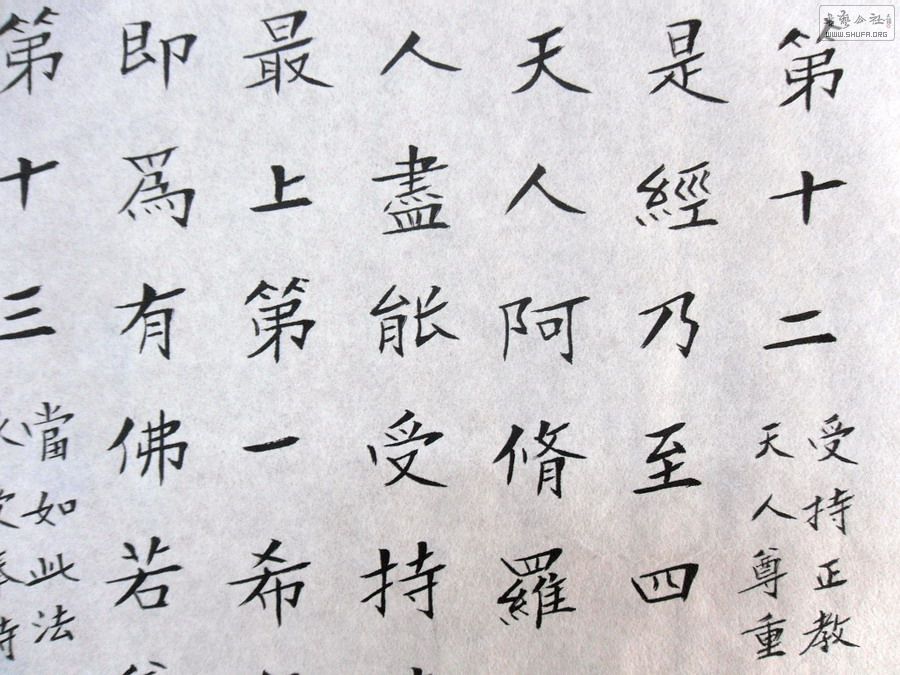 第十二
受持正教
天人尊重
是經乃至四
天人阿脩羅
人盡能受持
最上第一希
即爲有佛若
第十三
當如此法
書藝公社
WWW.SHUFA.ORG